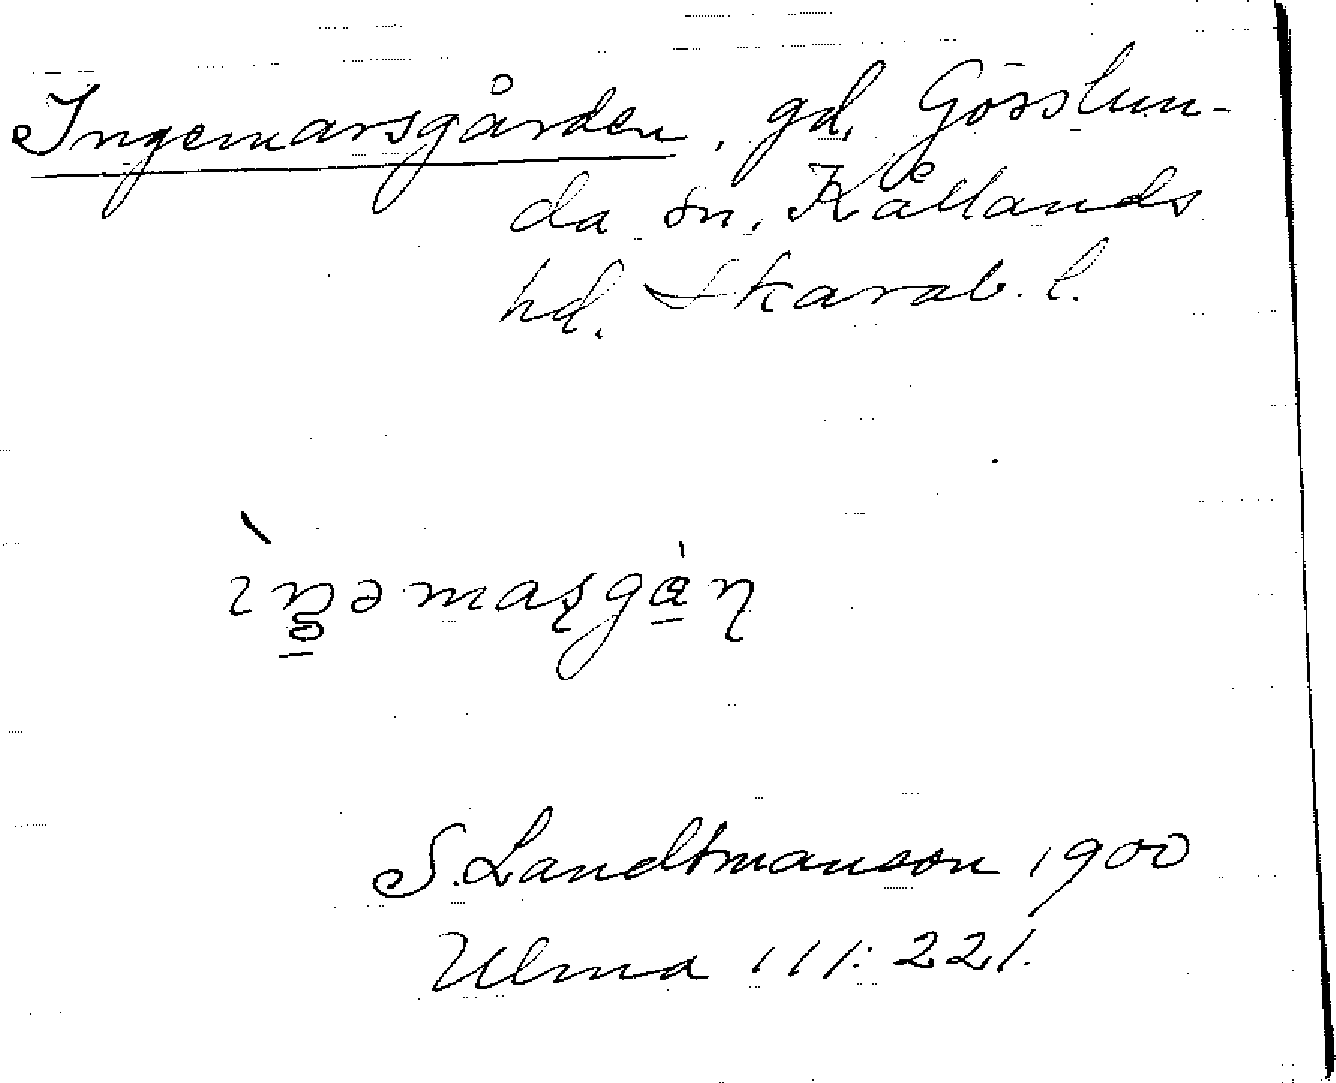 Ingemarsgården, gd, Gösslun-
da sn, Kållands
hd. Skarab. l.
S. Landtmanson 1900
Ulma 111: 221.